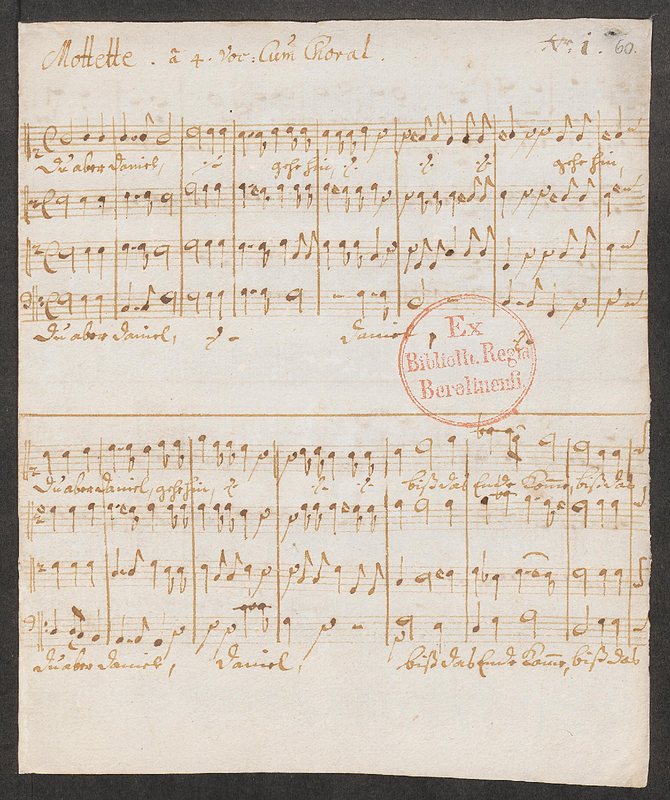 Mottette . à 4. Voc: Cum Choral.
No: 1. 60.
Du aber Daniel, ·/· gehe hin, ·/· ·/· ·/· gehe hin,
Du aber Daniel, ·/· Daniel, ·/·
Ex
Biblioth. Regia
Berolinensi.
Du aber Daniel, gehe hin, ·/· ·/· ·/· biß das Ende komme, biß das
Du aber Daniel, Daniel, biß das Ende komme, biß das